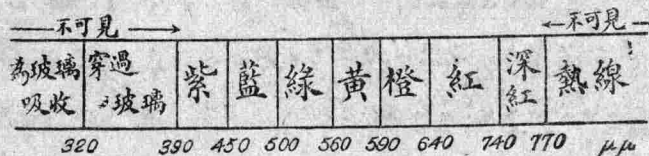 不可見 不可見
為玻璃吸收 穿過玻璃 紫 藍 綠 黃 橙 紅 深紅 熱線
320 390 450 500 560 590 640 740 770 μμ